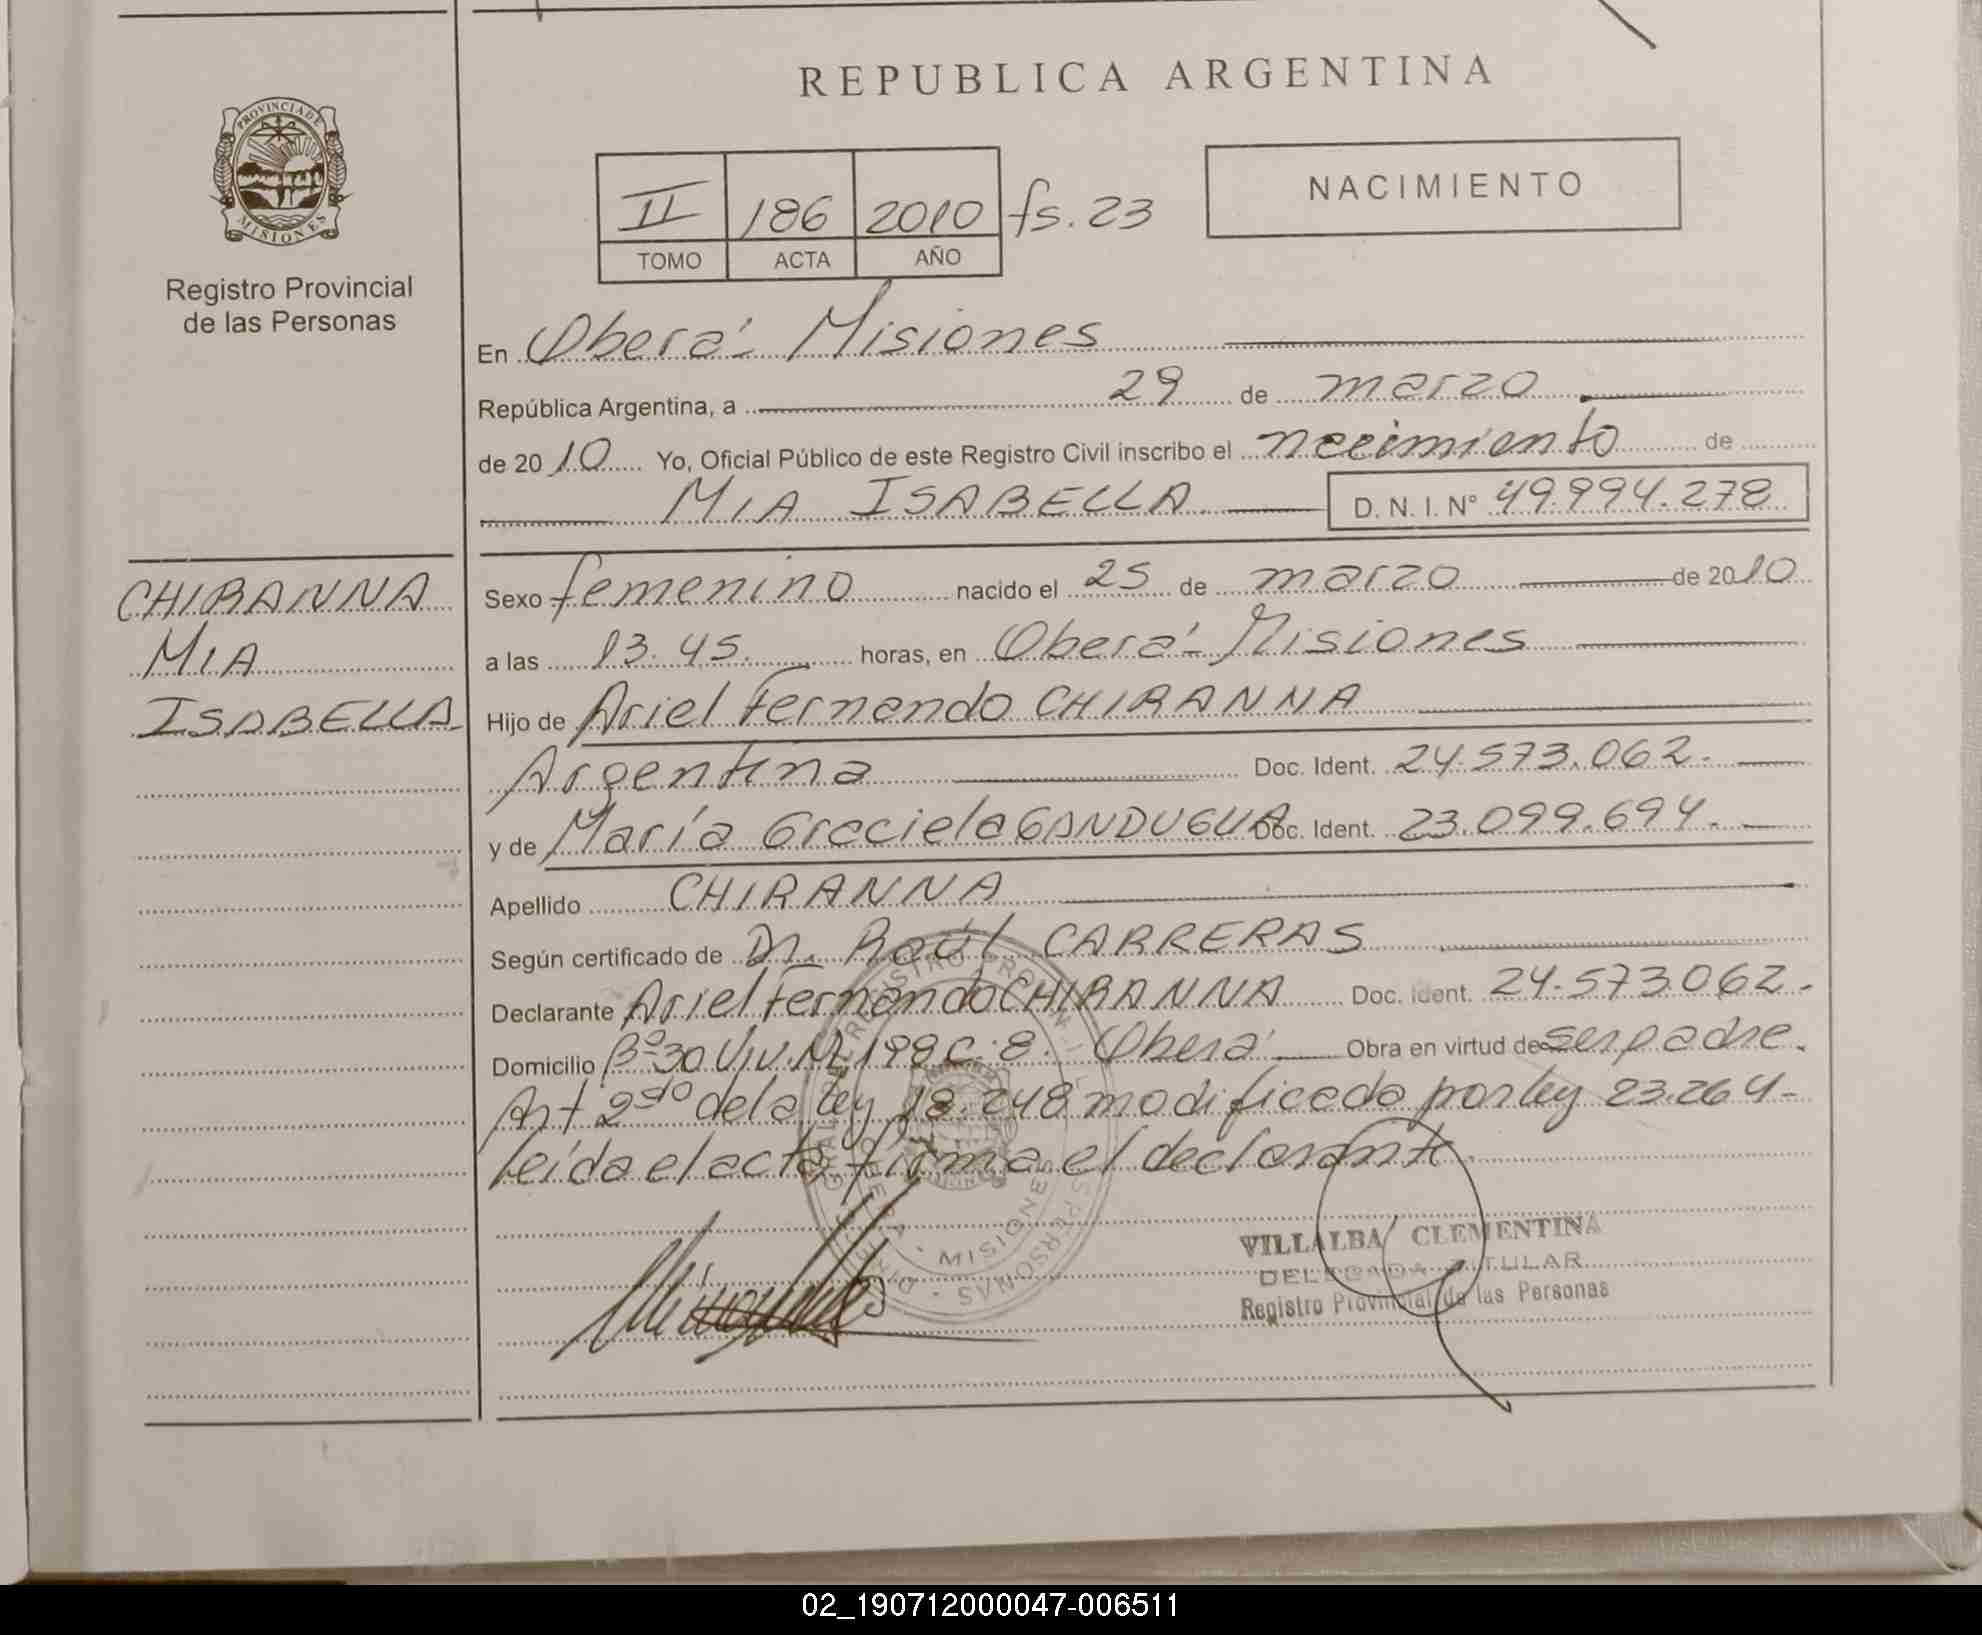 REPUBLICA ARGENTINA
PROVINCIA DE
MISIONES
Registro Provincial
de las Personas
II 186 2010 fs. 23
TOMO ACTA AÑO
NACIMIENTO
En Oberá - Misiones
República Argentina, a 29 de marzo
de 2010 Yo, Oficial Público de este Registro Civil inscribo el nacimiento de
MIA ISABELLA D. N. I. N° 49.994.278
CHIRANNA
MIA
ISABELLA
Sexo femenino nacido el 25 de marzo de 2010
a las 13.45. horas, en Oberá - Misiones
Hijo de Ariel Fernando CHIRANNA
Argentina Doc. Ident. 24.573.062.
y de María Graciela GANDUGLIA Doc. Ident. 23.099.694.
Apellido CHIRANNA
Según certificado de Dr. Raúl CARRERAS
Declarante Ariel Fernando CHIRANNA Doc. Ident. 24.573.062.
Domicilio B° 30 Viv. N 198 C. 8. Oberá Obra en virtud de ser padre.
Art 2do de la ley 18.248 modificada por ley 23.264-
Leída el acta firma el declarante.
MISIONES
VILLALBA CLEMENTINA
DELEGADA TITULAR
Registro Provincial de las Personas
02_190712000047-006511